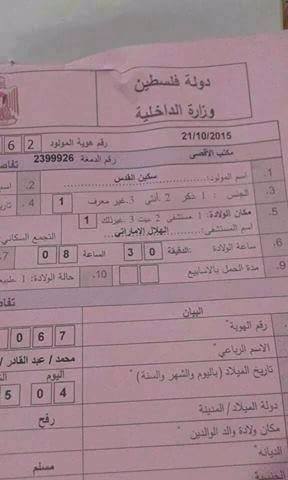 دولة فلسطين
وزارة الداخلية
21/10/2015
رقم هوية المولود 2 6
مكتب الأقصى
رقم الدمغة 2399926
تفاص
1. اسم المولود: سكين القدس
2. اسم
3. الجنس : 1 ذكر 2. أنثى 3.غير معرف 1
4. تاري
5. مكان الولادة: 1 مستشفى 2 ميت 3.غيرذلك 1
اسم المستشفى: الهلال الإماراتي
التجمع السكاني
6. ساعة الولادة: الدقيقة 30 الساعة 08
7.
9. مدة الحمل بالأسابيع
10. حالة الولادة: 1. طبيع
البيان
تفا
رقم الهوية"
7 6 0
الاسم الرباعي"
محمد / عبد القادر /
تاريخ الميلاد (باليوم والشهر والسنة)"
اليوم
04 5
دولة الميلاد / المدينة
رفح
مكان ولادة والد الوالدين"
الديانه"
مسلم
الجنسية